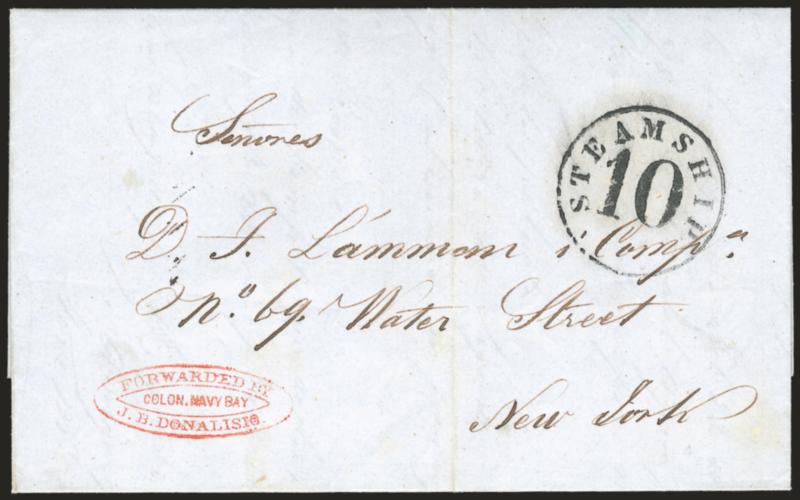 Señores
STEAMSHIP
10
D. J. Lámmom i Compª.
Nº 69. Water Street
New York
FORWARDED BY
COLON. NAVY BAY
J. B. DONALISIO.